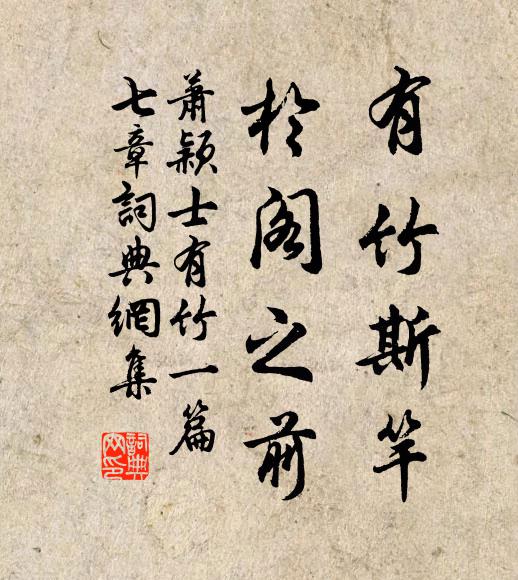 有竹斯竿
於阁之前
萧颖士有竹一篇
七章詞典網集
詞典
网印